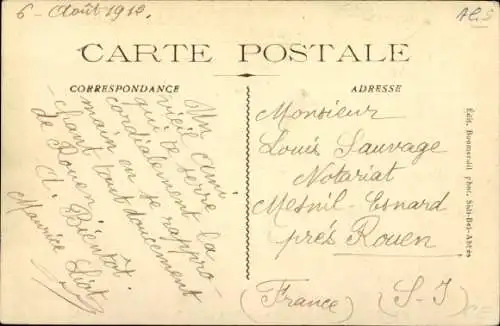 6 - Août 1912.
CARTE POSTALE
CORRESPONDANCE
Un
vieil ami
qui te serre
cordialement la
main en se rappro-
chant tout doucement
de Rouen
A Bientôt
Maurice
ADRESSE
Monsieur
Louis Sauvage
Notariat
Mesnil-Esnard
près Rouen
(France) (S-I)
Édit. Boumendil phot. Sidi-Bel-Abbès